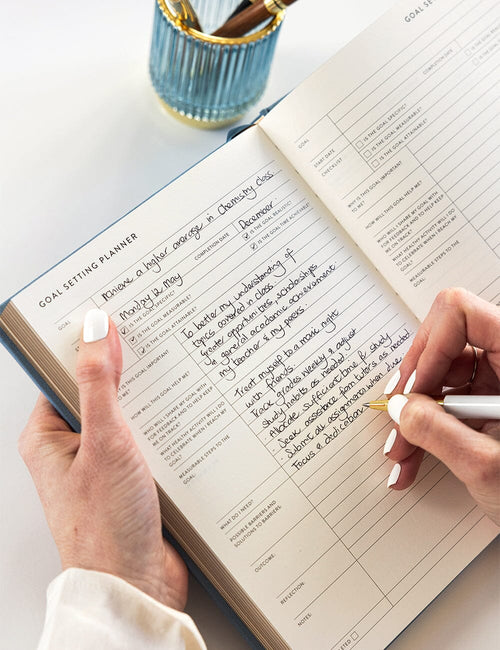 GOAL SETTING PLANNER
GOAL: achieve a higher average in chemistry class.
START DATE Monday 12 May COMPLETION DATE December
IS THE GOAL SPECIFIC? IS THE GOAL REALISTIC?
IS THE GOAL MEASURABLE? IS THE GOAL TIME ACHIEVABLE?
IS THE GOAL ATTAINABLE?
WHY IS THIS GOAL IMPORTANT
TO ME?
To better my understanding of
topics covered in class.
HOW WILL THIS GOAL HELP ME?
Greater opportunities, scholarships
& general academic achievement
WHO WILL I SHARE MY GOAL WITH
FOR FEEDBACK AND TO HELP KEEP
ME ON TRACK?
my teacher & my peers.
WHAT HEALTHY ACTIVITY WILL I DO
TO CELEBRATE WHEN I REACH MY
GOAL?
Treat myself to a music night
with friends.
MEASURABLE STEPS TO THE
GOAL:
Track grades weekly & adjust
study habits as needed.
Allocate sufficient time to study
- Seek assistance from tutors as needed.
- Submit all assignments when due.
Focus & dedication
WHAT DO I NEED?
POSSIBLE BARRIERS AND
SOLUTIONS TO BARRIERS:
OUTCOME:
REFLECTION:
NOTES:
GOAL SE
GOAL:
START DATE
COMPLETION DATE
CHECKLIST
IS THE GOAL SPECIFIC?
IS THE GOAL MEASURABLE?
IS THE GOAL ATTAINABLE?
WHY IS THIS GOAL IMPORTANT
TO ME?
HOW WILL THIS GOAL HELP ME?
WHO WILL I SHARE MY GOAL WITH
FOR FEEDBACK AND TO HELP KEEP
ME ON TRACK?
WHAT HEALTHY ACTIVITY WILL I DO
TO CELEBRATE WHEN I REACH MY
GOAL?
MEASURABLE STEPS TO THE
GOAL: